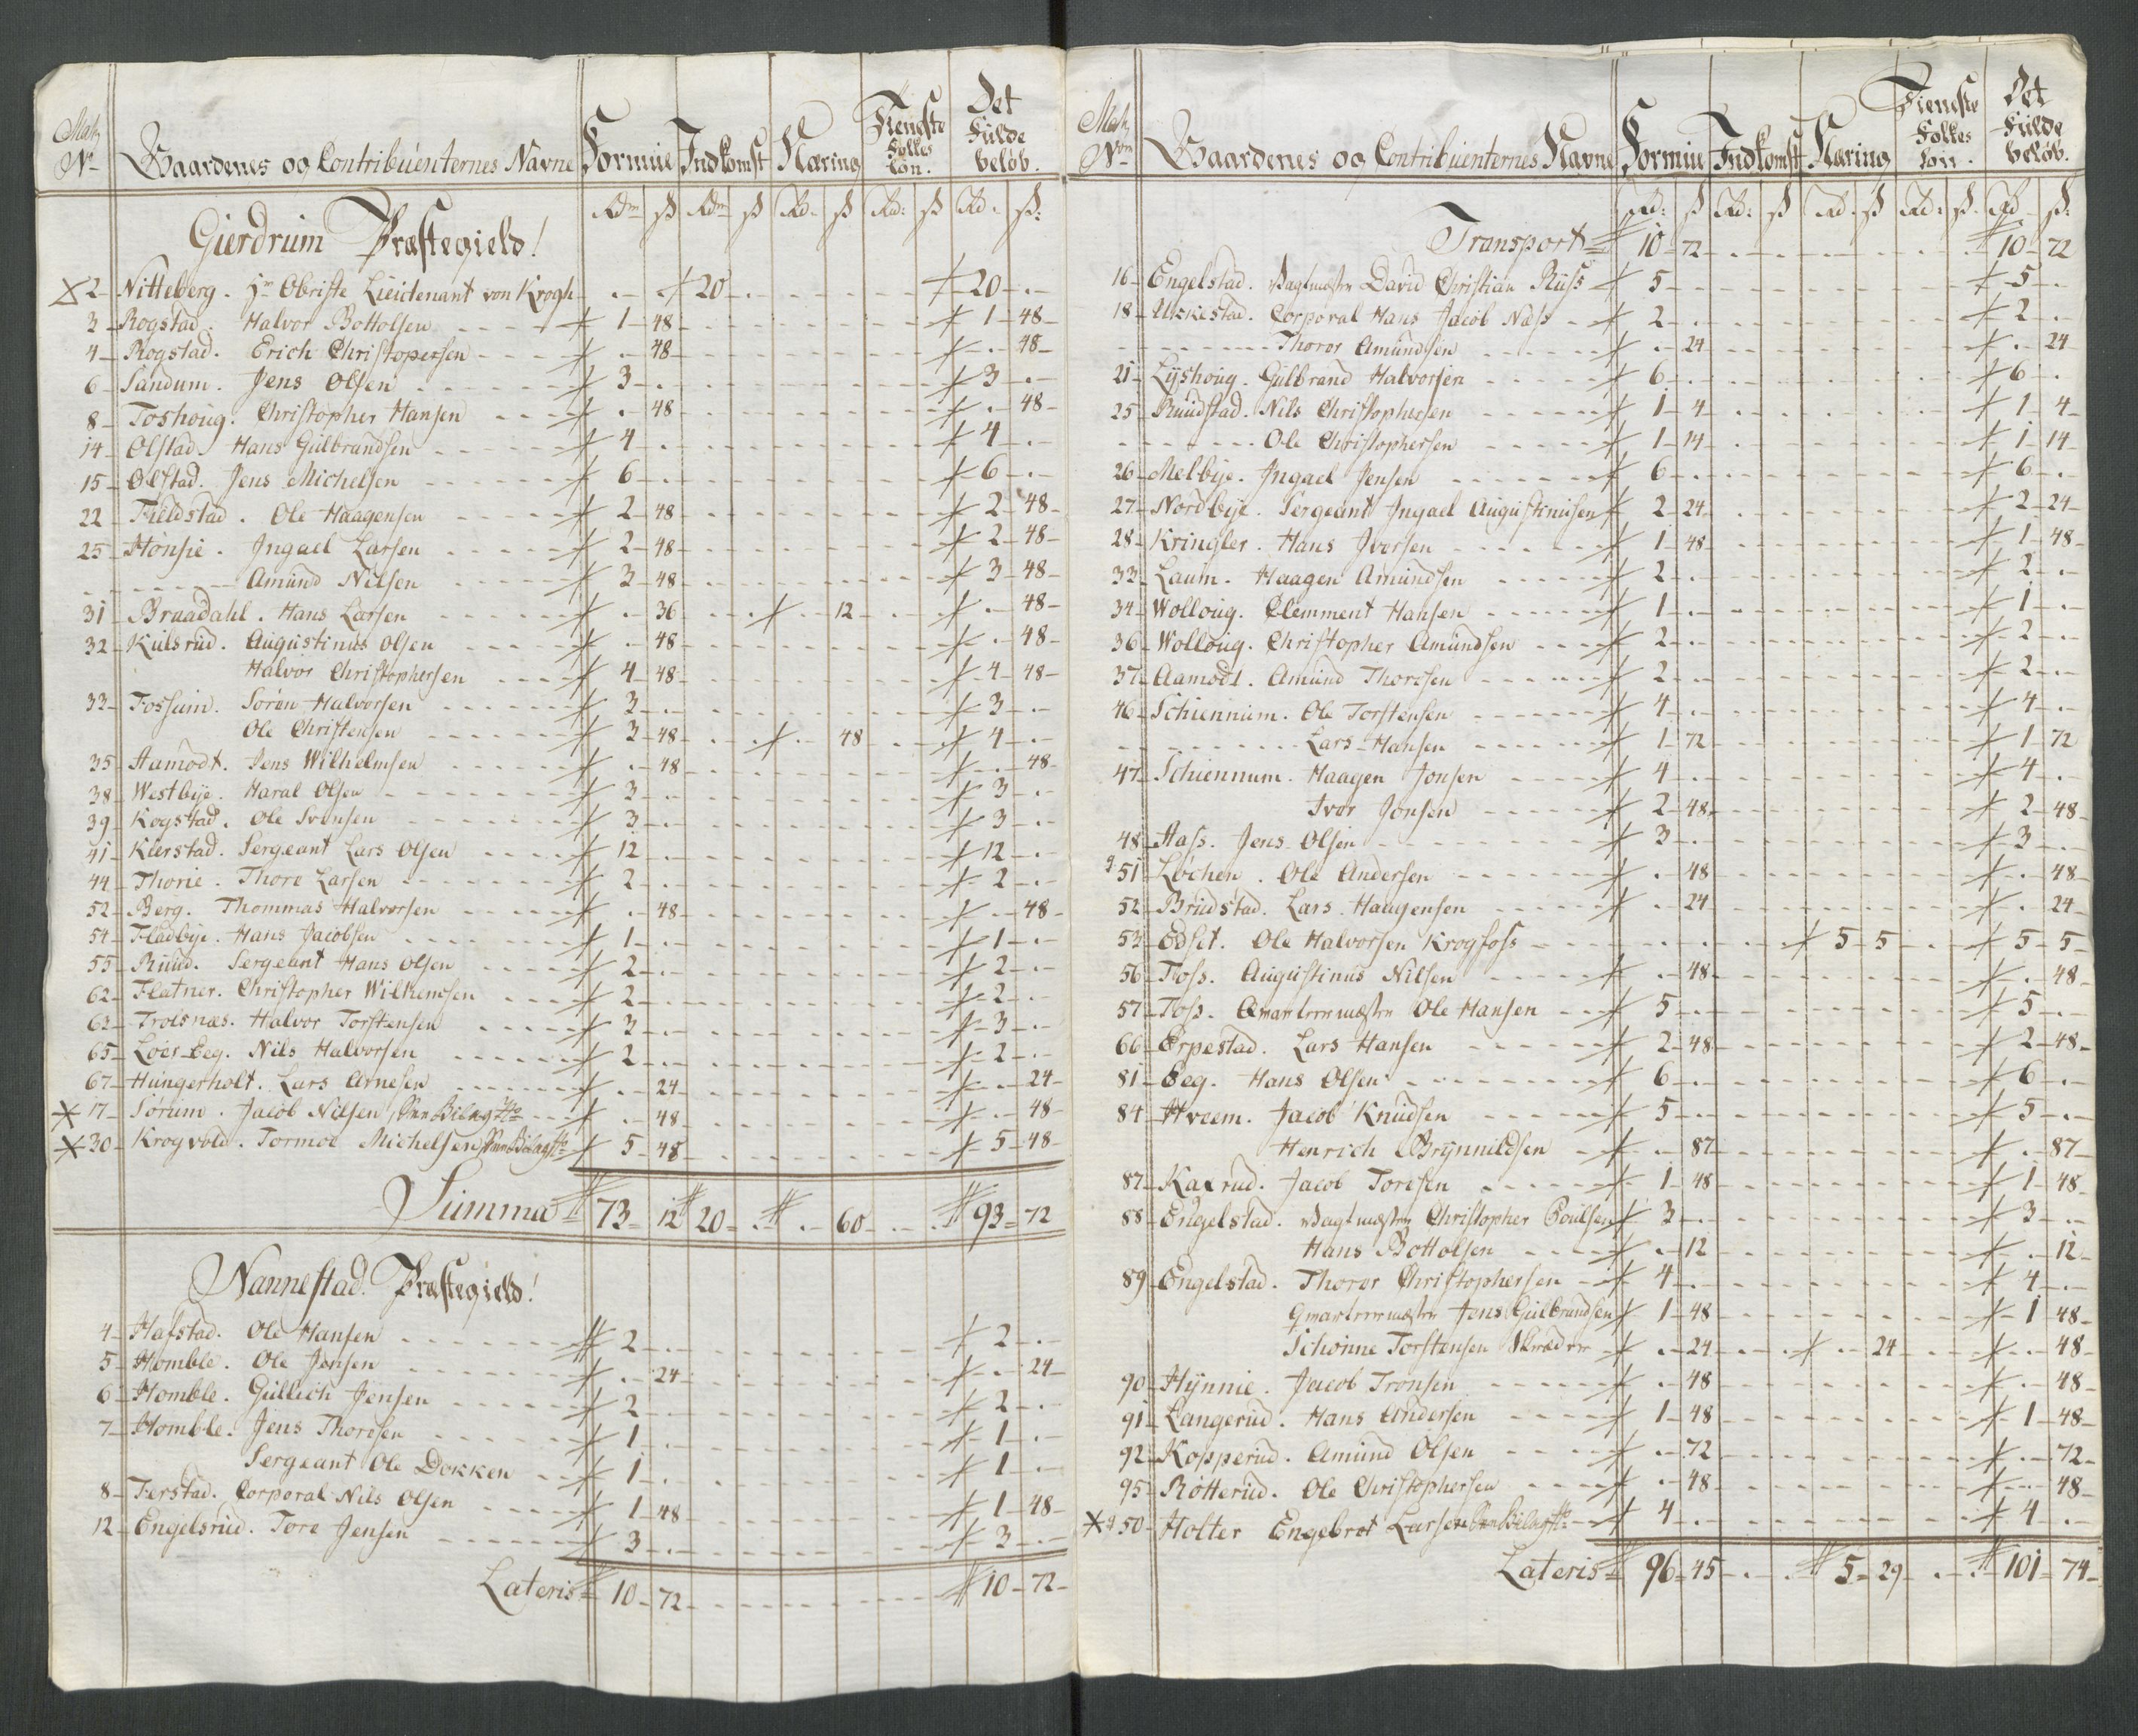 Gaardenes og Contribuenternes Navne Formue Indkomst Næring Tieneste Folkes løn. Det Fulde beløb.
Rd. ß Rd. ß Rd. ß Rd. ß Rd. ß
Gierdrum Præstegield!
2 Nitteberg. Hr Obriste Lieutenant von Krogh . . 20 . 20 .
3 Rogstad. Halvor Bottolsen 1 48 1 48
4 Rogstad. Erich Christopersen . 48 . 48
6 Sandum. Jens Olsen 3 . 3 .
8 Toshoug. Christopher Hansen . 48 . 48
14 Olstad. Hans Gulbrandsen 4 . 4 .
15 Olstad. Jens Michelsen 6 . 6 .
22 Fieldstad. Ole Haagensen 2 48 2 48
25 Hønsie. Ingael Larsen 2 48 2 48
Amund Nilsen 3 48 3 48
31 Braadahl. Hans Larsen . 36 . 12 . 48
32 Kulsrud. Augustinus Olsen . 48 . 48
Halvor Christophersen 4 48 4 48
33 Fossum. Søren Halvorsen 3 . 3 .
Ole Christensen 3 48 . 48 4 .
35 Aamodt. Jens Wilhelmsen . 48 . 48
38 Westbye. Haral Olsen 3 . 3 .
39 Kogstad. Ole Svensen 3 . 3 .
41 Kierstad. Sergeant Lars Olsen 12 . 12 .
44 Thorie. Thore Larsen 2 . 2 .
52 Berg. Thommas Halvorsen . 48 . 48
54 Fladbye. Hans Jacobsen 1 . 1 .
55 Ruud. Sergeant Hans Olsen 2 . 2 .
62 Flatner. Christopher Wilhemsen 2 . 2 .
63 Troisnæs. Halvor Torstensen 3 . 3 .
65 Løer-Eeg. Nils Halvorsen 2 . 2 .
67 Hungerholt. Lars Arnesen . 24 . 24
17 Sørum. Jacob Nilsen . 48 . 48
30 Krogvold. Tormoe Michelsen 5 48 5 48
Summa 73 12 20 . . 60 . . 93 72
Nannestad Præstegield!
4 Hafstad. Ole Hansen 2 . 2 .
5 Homble. Ole Jensen . 24 . 24
6 Homble. Gullich Jensen 2 . 2 .
7 Homble. Jens Thoresen 1 . 1 .
Sergeant Ole Dokken 1 . 1 .
8 Ferstad. Corporal Nils Olsen 1 48 1 48
12 Engelsrud. Tore Jensen 3 . 3 .
Lateris 10 72 10 72
Gaardenes og Contribuenternes Navne Formue Indkomst Næring Tieneste Folkes løn. Det Fulde beløb.
Rd: ß Rd: ß Rd. ß Rd: ß Rd ß:
Transport 10 72 10 72
16 Engelstad. Vagtmester David Christian Russ 5 5 .
18 Ukkestad. Corporal Hans Jacob Næss 2 . 2 .
Thoror Amundsen . 24 . 24
21 Lyshoug. Gulbrand Halvorsen 6 . 6 .
25 Ruudstad. Nils Christophersen 1 4 1 4
Ole Christophersen 1 14 1 14
26 Melbye. Ingael Jensen 6 . 6 .
27 Nordbye. Sergeant Ingael Augustinusen 2 24 2 24
28 Kringler. Hans Iversen 1 48 1 48
33 Laum. Haagen Amundsen 2 . 2 .
34 Wolloug. Clemment Hansen 1 . 1 .
36 Wolloug. Christopher Amundsen 2 . 2 .
37 Aamodt. Amund Thoresen 2 . 2 .
46 Schiennum. Ole Torstensen 4 . 4 .
Lars Hansen 1 72 1 72
47 Schiennum. Haagen Jonsen 4 . 4 .
Ivar Jonsen 2 48 2 48
48 Aass. Jens Olsen 3 . 3 .
51 Løchen. Ole Andersen . 48 . 48
52 Brudstad. Lars Haagensen . 24 . 24
53 Edset. Ole Halvorsen Krogfoss 5 5 5 5
56 Foss. Augustinus Nilsen . 48 . 48
57 Foss. Qvarteermester Ole Hansen 5 . 5 .
66 Erpestad. Lars Hansen 2 48 2 48
81 Eeg. Hans Olsen 6 . 6 .
84 Hveem. Jacob Knudsen 5 . 5 .
Henrich Brynnildsen . 87 . 87
87 Kaxrud. Jacob Toresen 1 48 1 48
88 Engelstad. Vagtmester Christopher Poulsen 3 . 3 .
Hans Bottolsen . 12 . 12
89 Engelstad. Thoror Christophersen 4 . 4 .
Qvarteermester Jens Gulbrandsen 1 48 1 48
Schønne Torstensen Skræder . 24 . 24 . 48
90 Hynnie. Jacob Tronsen . 48 . 48
91 Langerud. Hans Andersen 1 48 1 48
92 Kopperud. Amund Olsen . 72 . 72
95 Røtterud. Ole Christophersen . 48 . 48
50 Holter Engebret Larsen 4 . 4 .
Lateris 96 45 . . 5 29 . . 101 74